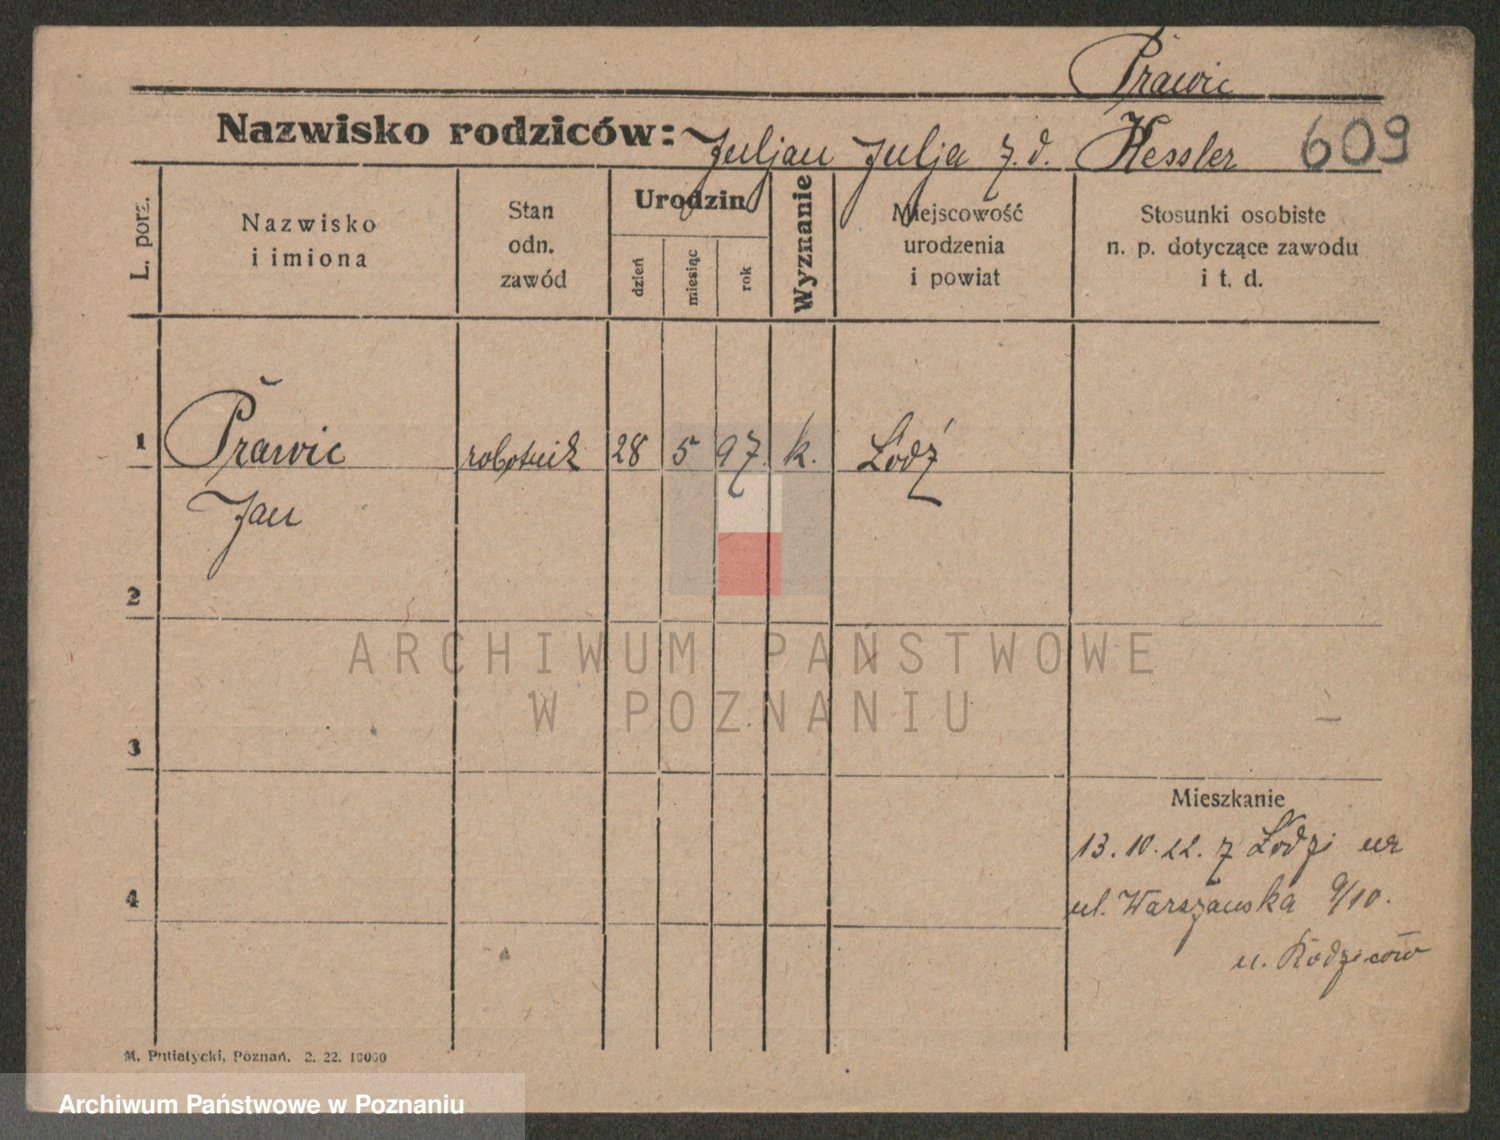 Prawic
Nazwisko rodziców: Juljan Julja z. d. Kessler 609
L. porz.
Nazwisko
i imiona
Stan
odn.
zawód
Urodzin
dzień
miesiąc
rok
Wyznanie
Miejscowość
urodzenia
i powiat
Stosunki osobiste
n. p. dotyczące zawodu
i t. d.
1 Prawic robotnik 28 5 97. k. Łódź
Jan
2
3
4
Mieszkanie
13. 10. 22. z Łodzi
ul. Warszawska 9/10.
u. Rodziców
M. Putiatycki, Poznań. 2. 22. 10000
ARCHIWUM PAŃSTWOWE
W POZNANIU
Archiwum Państwowe w Poznaniu